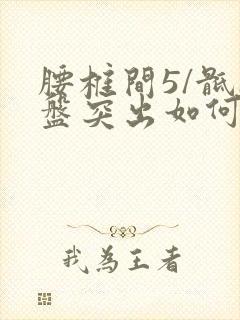 腰椎間5/骶
盤突出如何
我為王者